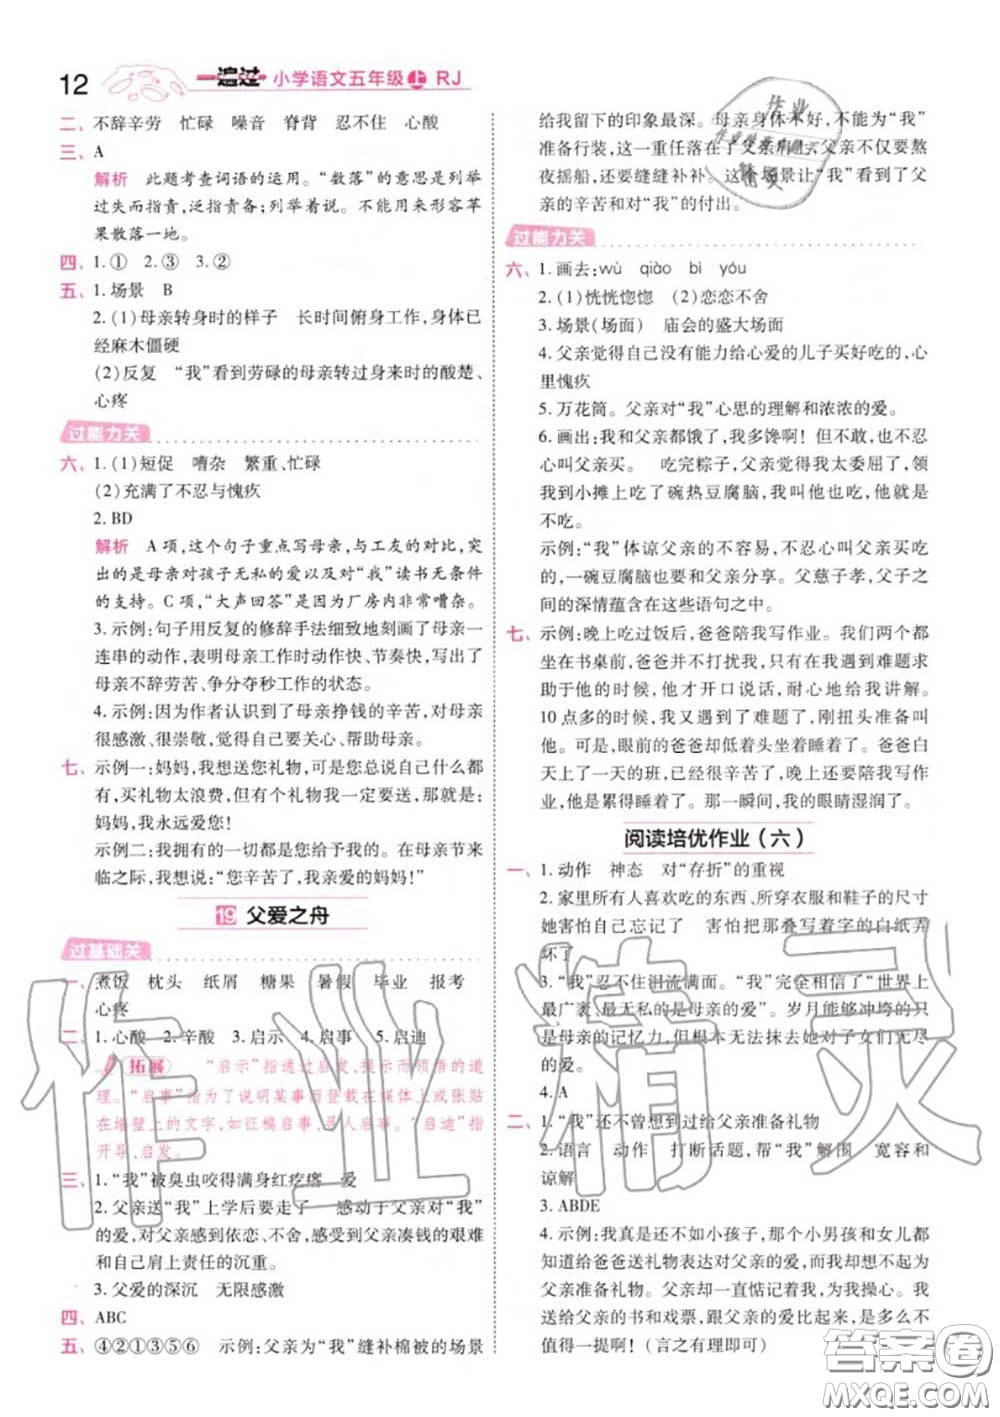 12
一遍过 小学语文五年级上 RJ
二、不辞辛劳 忙碌 噪音 脊背 忍不住 心酸
三、A
解析 此题考查词语的运用。“数落”的意思是列举
过失而指责,泛指责备;列举着说。不能用来形容苹
果散落一地。
四、1.① 2.③ 3.②
五、1.场景 B
2.(1)母亲转身时的样子 长时间俯身工作,身体已
经麻木僵硬
(2)反复 “我”看到劳碌的母亲转过身来时的酸楚、
心疼
过能力关
六、1.(1)短促 嘈杂 繁重、忙碌
(2)充满了不忍与愧疚
2.BD
解析 A项,这个句子重点写母亲,与工友的对比,突
出的是母亲对孩子无私的爱以及对“我”读书无条件
的支持。C项,“大声回答”是因为厂房内非常嘈杂。
3.示例:句子用反复的修辞手法细致地刻画了母亲一
连串的动作,表明母亲工作时动作快、节奏快,写出了
母亲不辞劳苦、争分夺秒工作的状态。
4.示例:因为作者认识到了母亲挣钱的辛苦,对母亲
很感激、很崇敬,觉得自己要关心、帮助母亲。
七、示例一:妈妈,我想送您礼物,可是您总说自己什么都
有,买礼物太浪费,但有个礼物我一定要送,那就是:
妈妈,我永远爱您!
示例二:我拥有的一切都是您给予我的。在母亲节来
临之际,我想说:“您辛苦了,我亲爱的妈妈!”
19 父爱之舟
过基础关
一、煮饭 枕头 纸屑 糖果 暑假 毕业 报考
心疼
二、1.心酸 2.辛酸 3.启示 4.启事 5.启迪
拓展 “启示”指通过启发、提示而领悟的道
理。“启事”指为了说明某事而登载在媒体上或张贴
在墙壁上的文字,如征稿启事、寻人启事。“启迪”指
开导、启发。
三、1.“我”被臭虫咬得满身红疙瘩 爱
2.父亲送“我”上学后要走了 感动于父亲对“我”
的爱,对父亲感到依恋、不舍,感受到父亲凑钱的艰难
和自己肩上责任的沉重。
3.父爱的深沉 无限感激
四、ABC
五、④②①③⑤⑥ 示例:父亲为“我”缝补棉被的场景
给我留下的印象最深。母亲身体不好,不能为“我”
准备行装,这一重任落在了父亲肩上,父亲不仅要熬
夜摇船,还要缝缝补补。这个场景让“我”看到了父
亲的辛苦和对“我”的付出。
过能力关
六、1.画去:wù qiào bì yóu
2.(1)恍恍惚惚 (2)恋恋不舍
3.场景(场面) 庙会的盛大场面
4.父亲觉得自己没有能力给心爱的儿子买好吃的,心
里愧疚
5.万花筒。父亲对“我”心思的理解和浓浓的爱。
6.画出:我和父亲都饿了,我多馋啊!但不敢,也不忍
心叫父亲买。 吃完粽子,父亲觉得我太委屈了,领
我到小摊上吃了碗热豆腐脑,我叫他也吃,他就是
不吃。
示例:“我”体谅父亲的不容易,不忍心叫父亲买吃
的,一碗豆腐脑也要和父亲分享。父慈子孝,父子之
间的深情蕴含在这些语句之中。
七、示例:晚上吃过饭后,爸爸陪我写作业。我们两个都
坐在书桌前,爸爸并不打扰我,只有在我遇到难题求
助于他的时候,他才开口说话,耐心地给我讲解。
10点多的时候,我又遇到了难题了,刚扭头准备叫
他。可是,眼前的爸爸却低着头坐着睡着了。爸爸白
天上了一天的班,已经很辛苦了,晚上还要陪我写作
业,他是累得睡着了。那一瞬间,我的眼睛湿润了。
阅读培优作业(六)
一、1.动作 神态 对“存折”的重视
2.家里所有人喜欢吃的东西、所穿衣服和鞋子的尺寸
她害怕自己忘记了 害怕把那叠写着字的白纸弄
坏了
3.“我”忍不住泪流满面。“我”完全相信了“世界上
最广袤、最无私的是母亲的爱”。岁月能够冲垮的只
是母亲的记忆力,但根本无法抹去她对子女们无尽
的爱。
4.A
二、1.“我”还不曾想到过给父亲准备礼物
2.语言 动作 打断话题,帮“我”解围 宽容和
谅解
3.ABDE
4.示例:我真是还不如小孩子,那个小男孩和女儿都
知道给爸爸送礼物表达对父亲的爱,而我却不知道为
父亲准备礼物。父亲却一直惦记着我、想着我。我
送给父亲的书和戏票,跟父亲的爱比起来,是多么不
值得一提啊!(言之有理即可)
作业精灵
答案圈
MXQE.COM